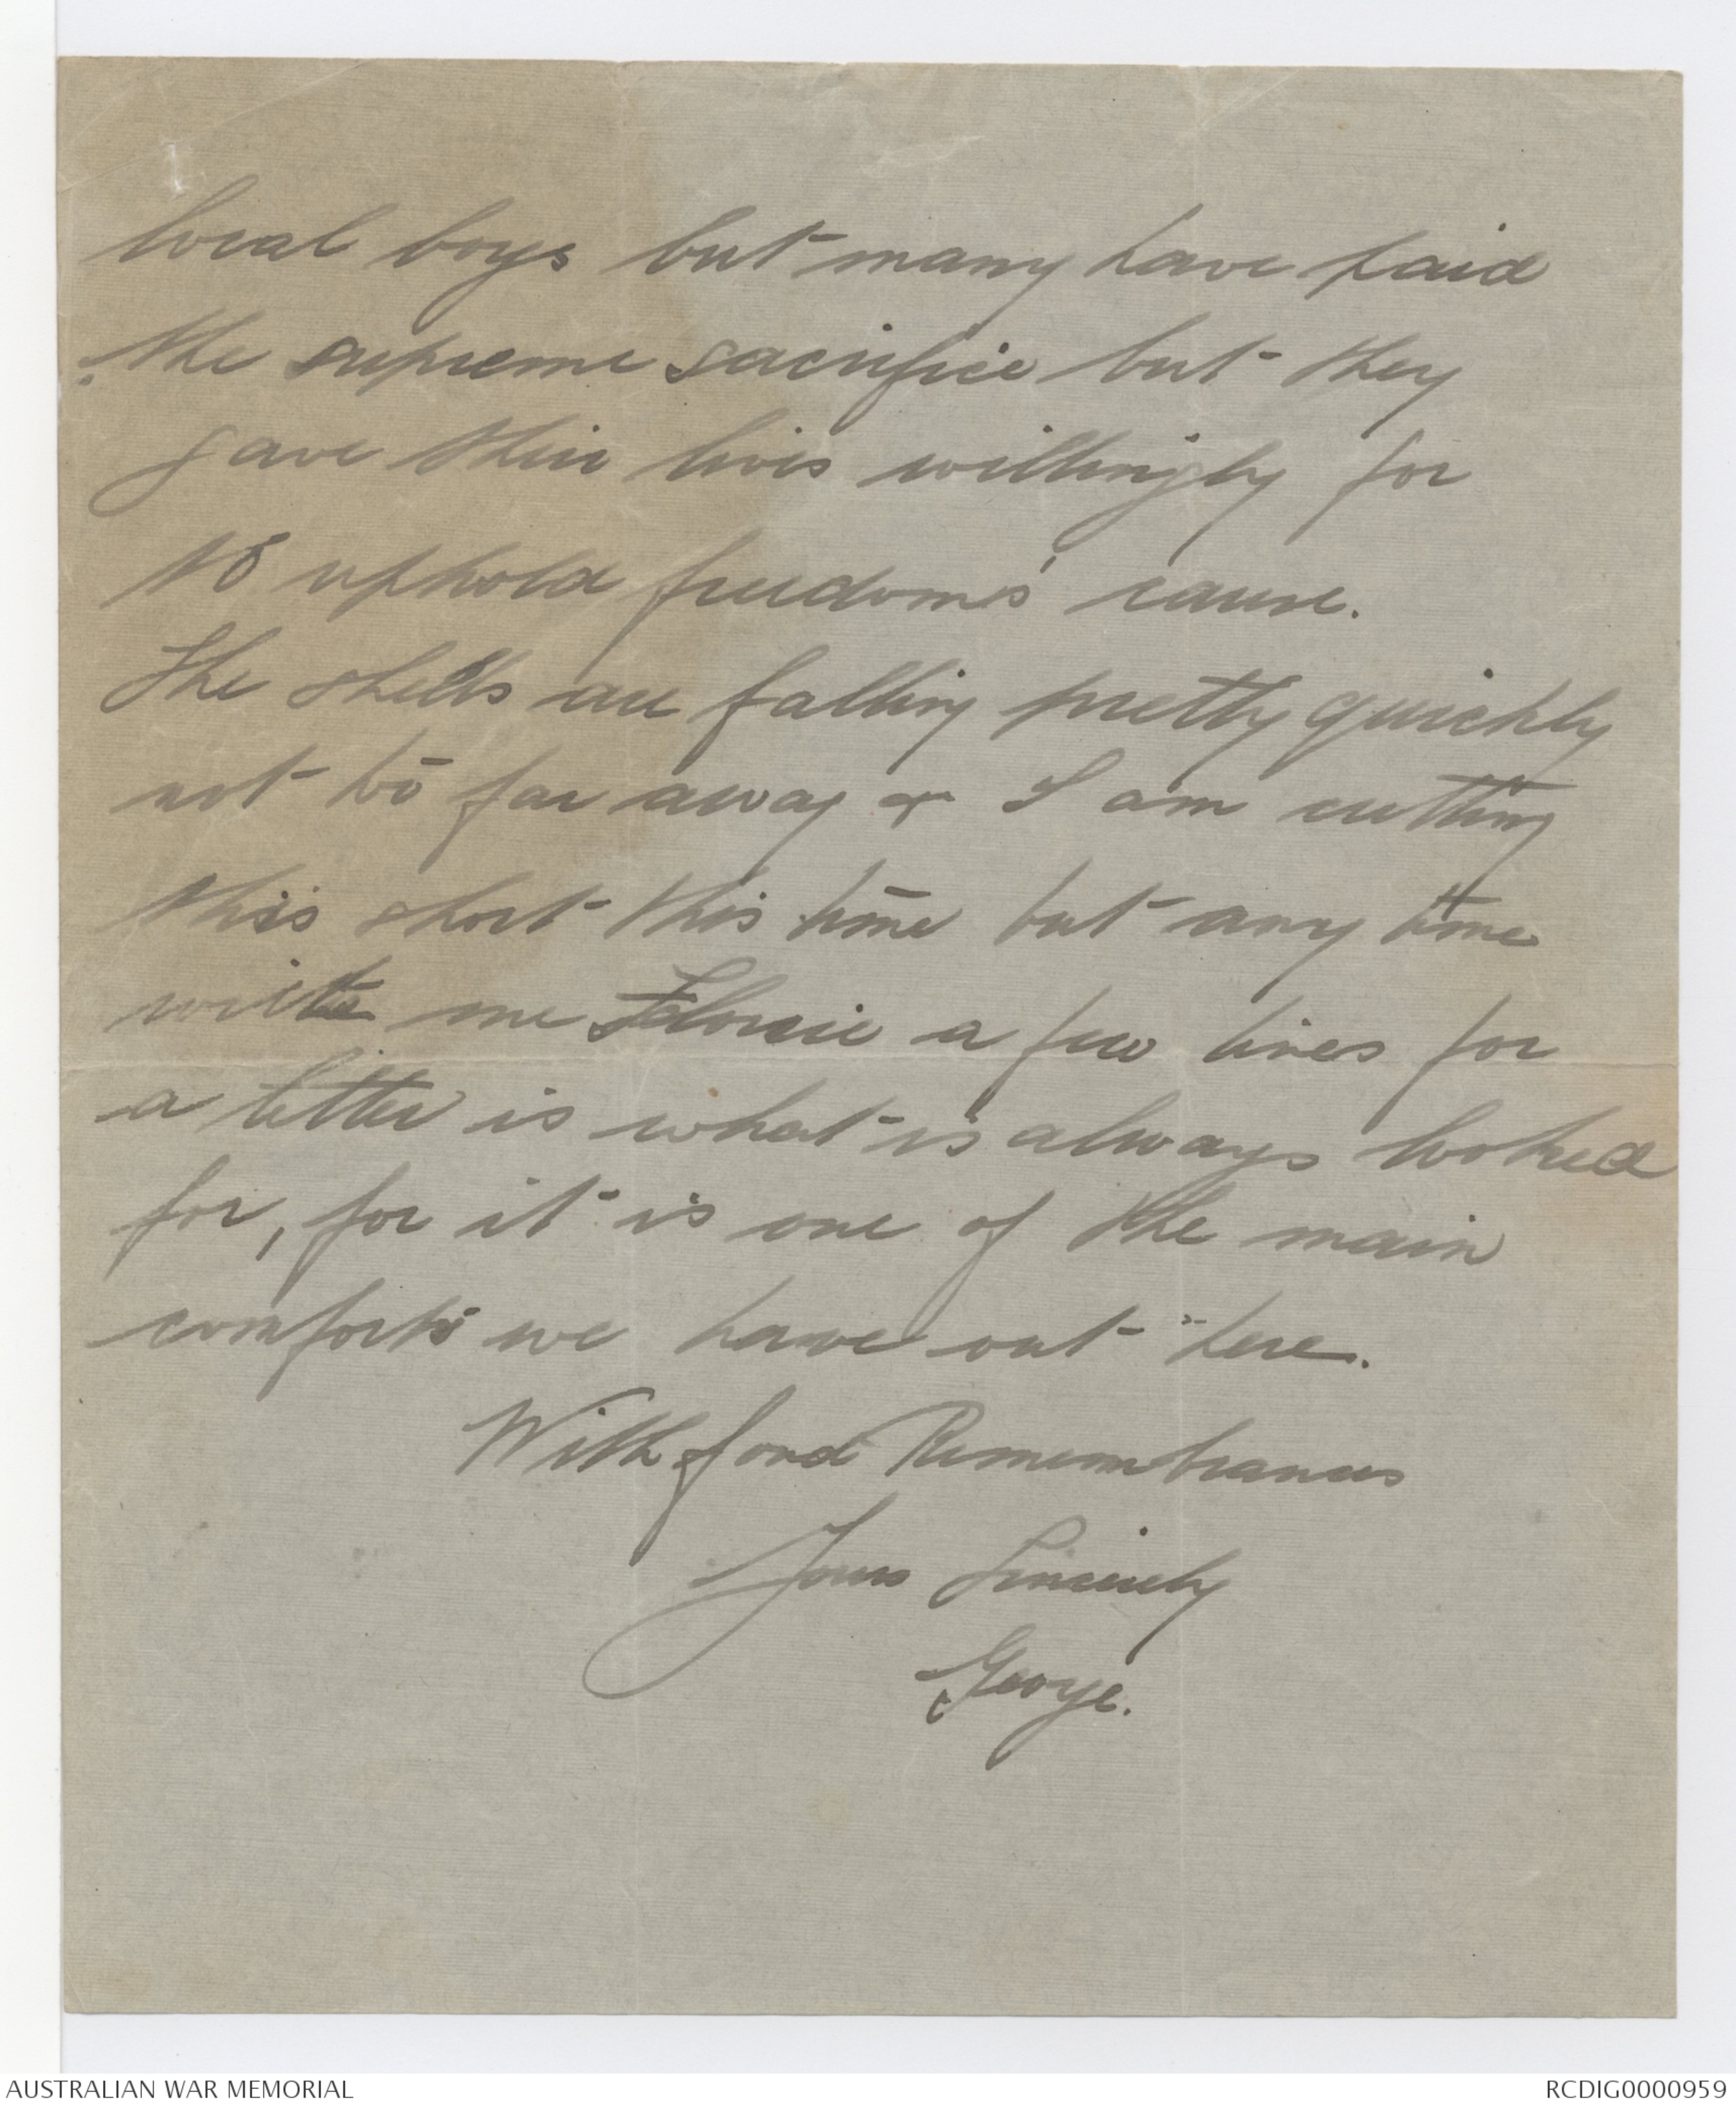 local boys but many have paid
the supreme sacrifice but they
gave their lives willingly for
to uphold freedom's cause.
The shells are falling pretty quickly
not to far away & I am cutting
this short this time but any time
write me Florrie a few lines for
a letter is what is always looked
for, for it is one of the main
comforts we have out here.
With fond Remembrances
Yours Sincerely
George.
AUSTRALIAN WAR MEMORIAL
RCDIG0000959